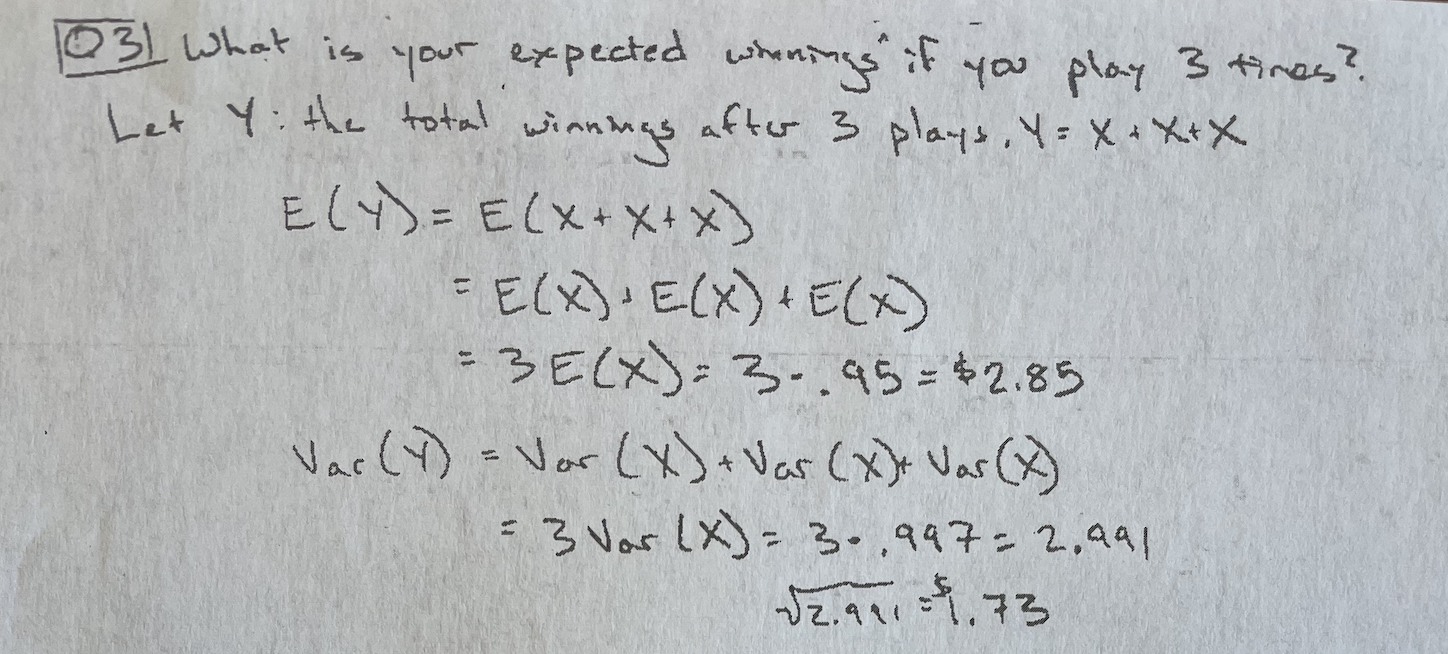 Q3 What is your expected winnings if you play 3 times?
Let Y: the total winnings after 3 plays. Y = X + X + X
E(Y) = E(X + X + X)
= E(X) + E(X) + E(X)
= 3E(X) = 3 · .95 = $2.85
Var(Y) = Var(X) + Var(X) + Var(X)
= 3 Var(X) = 3 · .997 = 2.991
√2.991 = $1.73